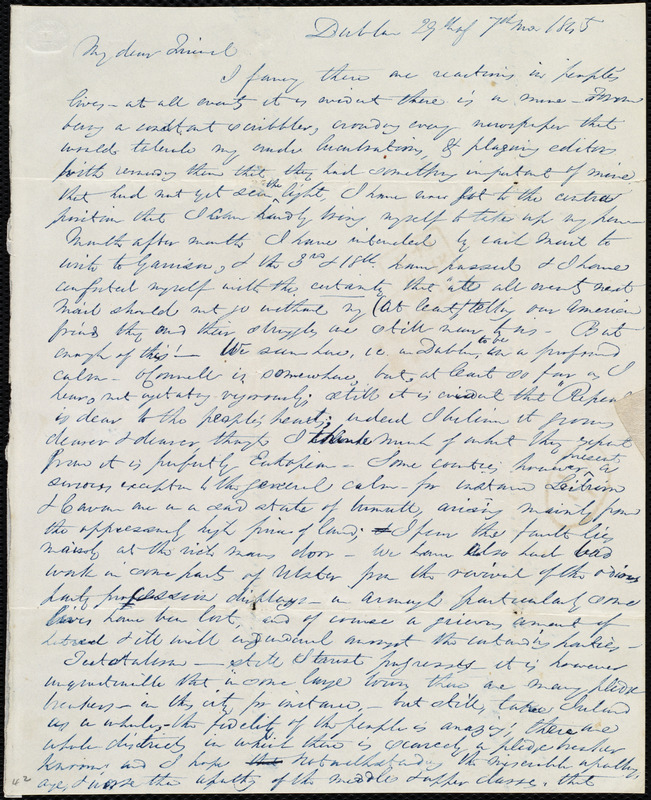 Dublin 29th of 7th mo 1845
My dear Friend
I fancy there are reactions in people's
lives - at all events it is evident there is in mine - From
being a constant scribbler, crowding every newspaper that
would tolerate my crude lucubrations, & plaguing editors
with viewing them that they had something important of mine
that had not yet seen the light, I have now got to the contrary
position that I can hardly bring myself to take up my pen -
Month after month I have intended by each mail to
write to Garrison, & the 3rd & 18th have passed & I have
comforted myself with the certainty that "at all events" next
mail should not go without my (at least) telling our American
friends they and their struggles are still near to us - But
enough of this! - We seem here, i.e. in Dublin, to be in a profound
calm - O'Connell is somewhere, but, at least so far as I
hear, not agitating vigorously: still it is evident that "Repeal"
is dear to the people's hearts; indeed I believe it grows
dearer & dearer though I think much of what they expect
from it is perfectly Eutopian - Some counties however present a
serious exception to the general calm - for instance Leitrim
& Cavan are in a sad state of tumult, arising mainly from
the oppressively high price of land; I fear the fault lies
mainly at the rich man's door - We have also had bad
work in some parts of Ulster from the revival of the odious
party procession displays - in Armagh particularly some
lives have been lost, and of course a grievous amount of
hatred & ill will engendered amongst the contending parties -
Teetotalism - still I trust progresses it is however
unquestionable that in some large towns there are many pledge
breakers - in this city for instance, - but still, take Ireland
as a whole, the fidelity of the people is amazing; there are
whole districts in which there is scarcely a pledge breaker
known: and I hope notwithstanding the miserable apathy,
aye, & worse than apathy of the middle & upper classes, that
42